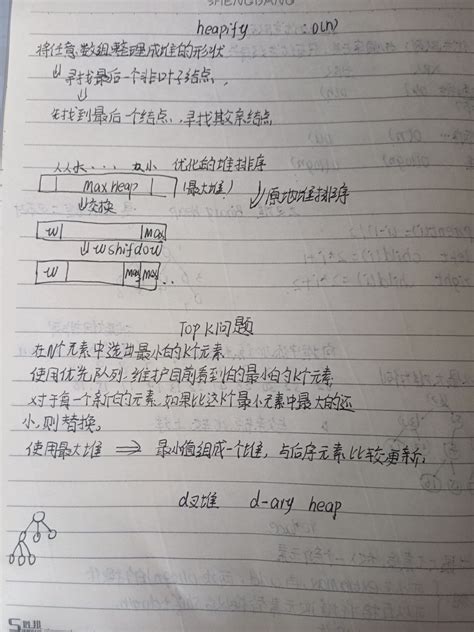 SHENGBANG
heapify : O(n)
将任意数组整理成堆的形状
↓ 寻找最后一个非叶子结点、
先找到最后一个结点、寻找其父结点
从大... 为小 优化的堆排序
max heap (最大堆) ↓原地堆排序
↓交换
w max
↓w shifdow
w max max
Top K问题
在N个元素中选出最小的K个元素
使用优先队列,维护目前看到的最小的K个元素
对于每一个新的元素,如果比这K个最小元素中最大的还
小,则替换。
使用最大堆 ⇒ 最小值组成一个堆,与后序元素比较更新,
d叉堆 d-ary heap